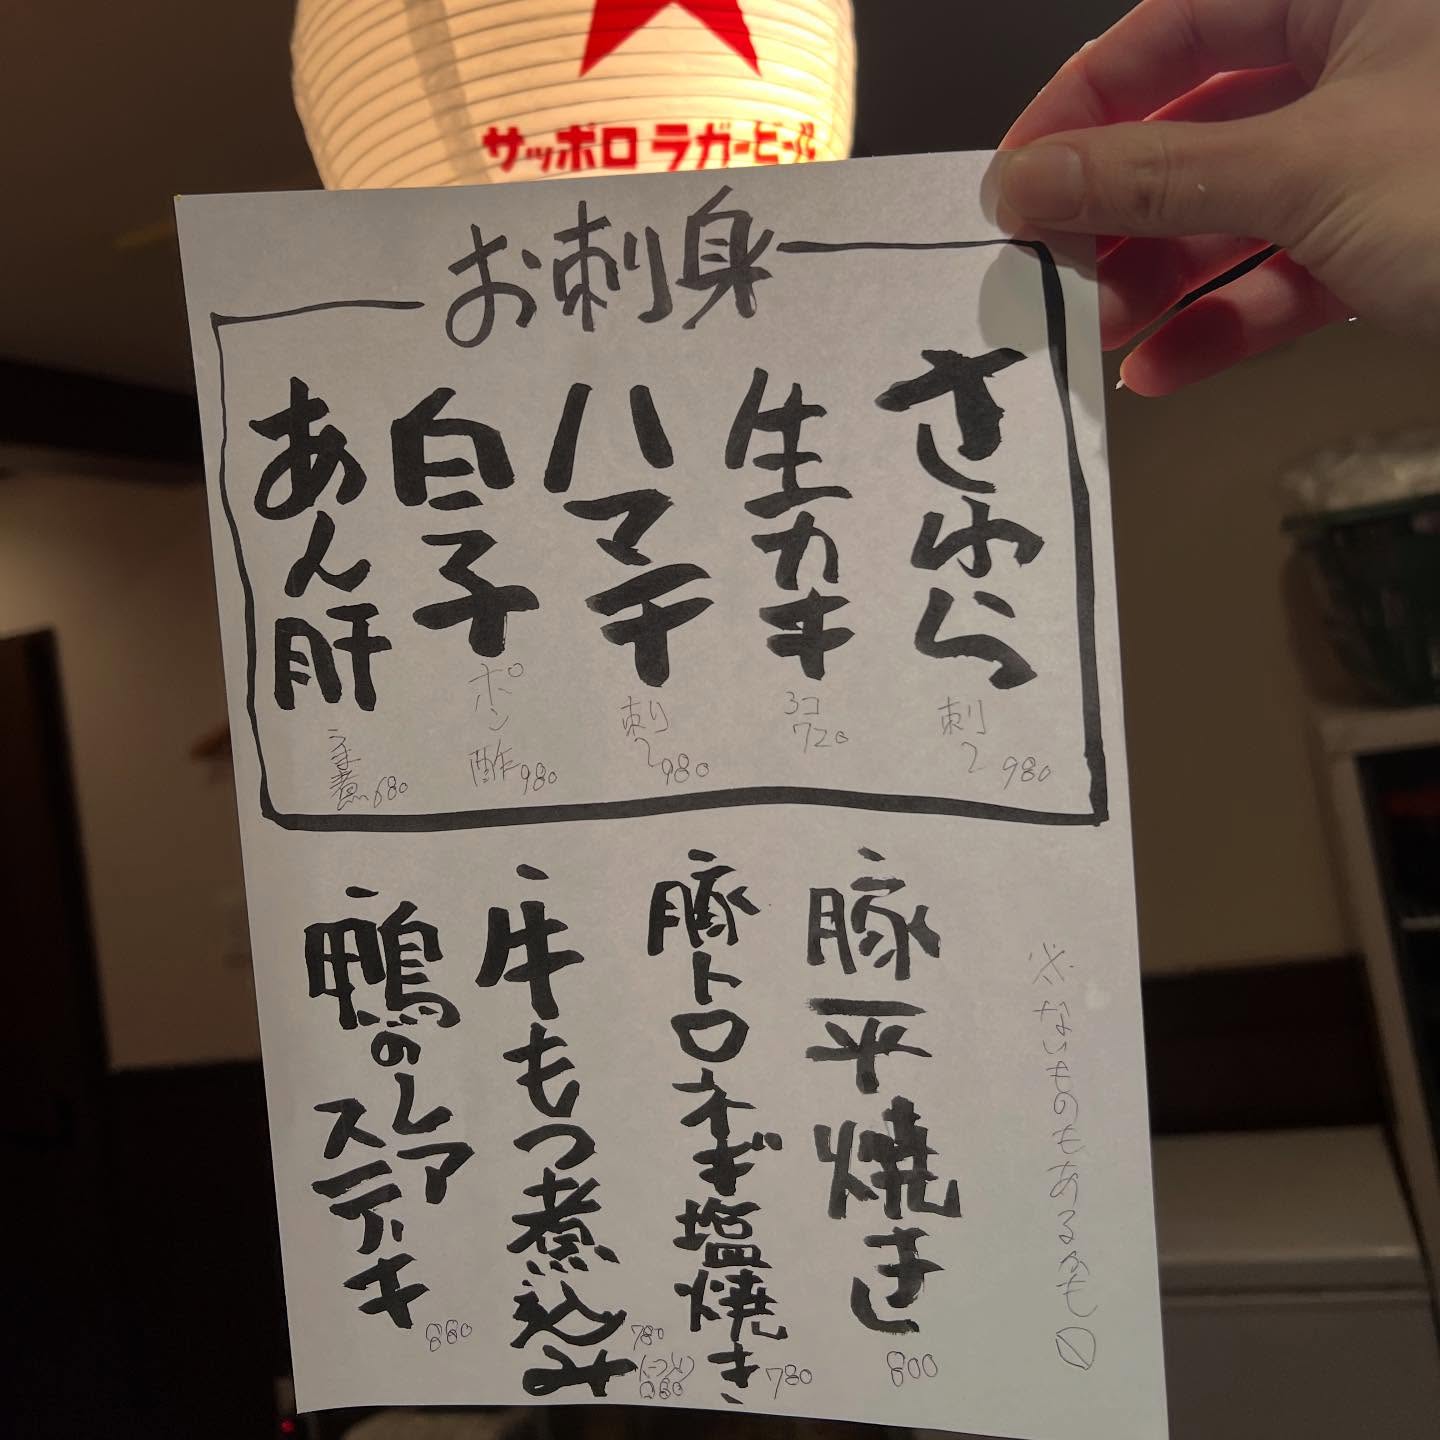 サッポロ ラガービール
お刺身
さわら
刺 980
生カキ
3コ
720
ハマチ
刺 980
白子
ポン酢 980
あん肝
うま煮 680
※ないものもあるかも
豚平焼き
800
豚トロネギ塩焼き
780
牛もつ煮込み
780
鴨のレアステーキ